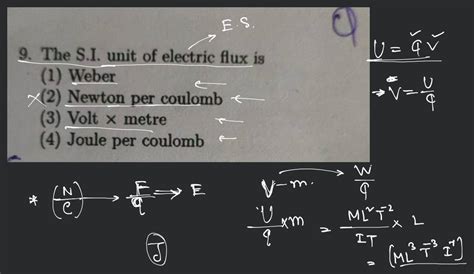 E.S.
9. The S.I. unit of electric flux is
(1) Weber
×(2) Newton per coulomb
(3) Volt × metre
(4) Joule per coulomb
U = q V
V = U/q
* (N/C) → F/q ⇒ E
V-m. → W/q
U/q × m = ML²T⁻²/IT × L
= [ML³T⁻³I⁻¹]
J